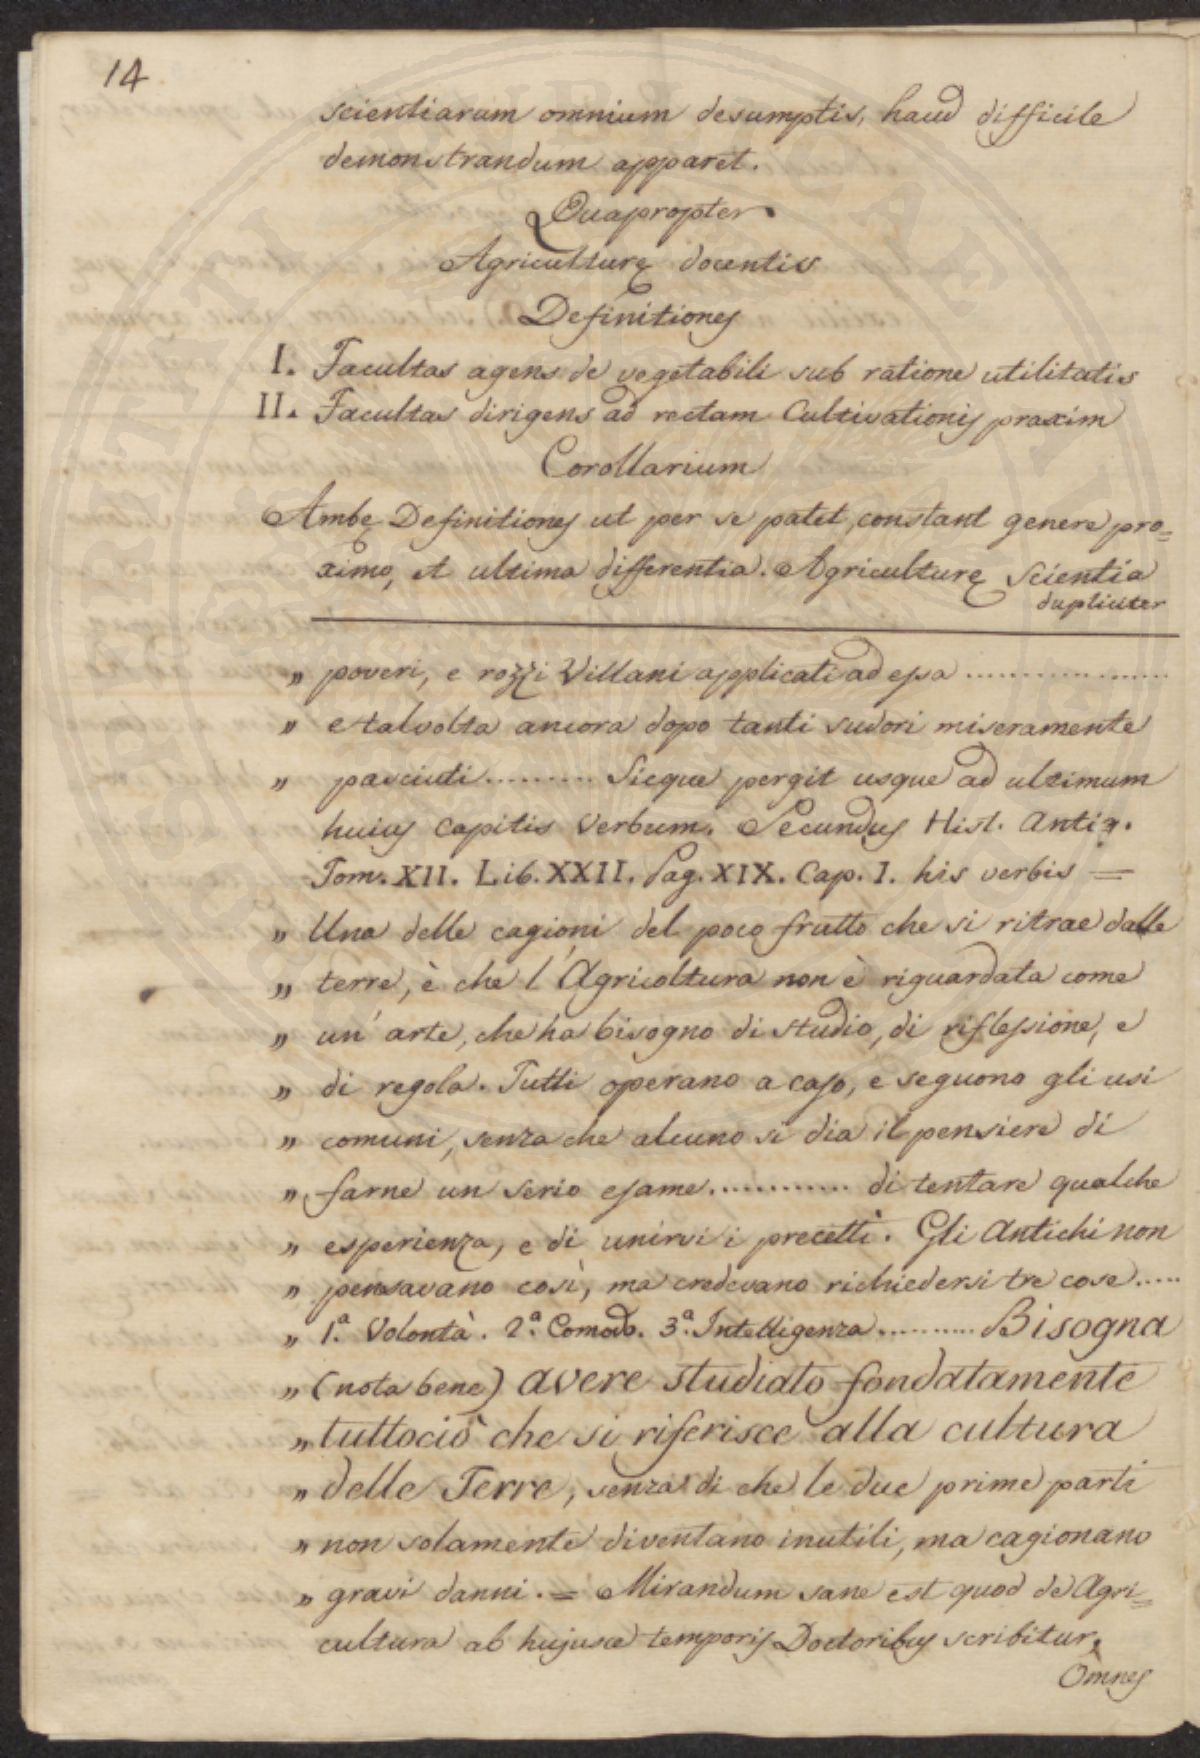 14
scientiarum omnium desumptis, haud difficile
demonstrandum apparet.
Quapropter
Agriculturę docentis
Definitiones
I. Facultas agens de vegetabili sub ratione utilitatis
II. Facultas dirigens ad rectam Cultivationis praxim
Corollarium
Ambę Definitiones ut per se patet, constant genere pro=
ximo, et ultima differentia. Agriculturę scientia
dupliciter
„ poveri, e rozzi Villani applicati ad essa ..................
„ e talvolta ancora dopo tanti sudori miseramente
„ pasciuti .......... Sicque pergit usque ad ultimum
hujus Capitis Verbum. Secundus Hist. Antiq.
Tom. XII. Lib. XXII. Pag. XIX. Cap. I. his verbis =
„ Una delle cagioni del poco frutto che si ritrae dalle
„ terre, è che l'Agricoltura non è riguardata come
„ un' arte, che ha bisogno di studio, di riflessione, e
„ di regola. Tutti operano a caso, e seguono gli usi
„ comuni, senza che alcuno si dia il pensiere di
„ farne un serio esame ............ di tentare qualche
„ esperienza, e di unirvi i precetti. Gli Antichi non
„ pensavano così, ma credevano richiedersi tre cose .....
„ 1.ª Volontà. 2.ª Comodo. 3.ª Intelligenza .......... Bisogna
„ (nota bene) avere studiato fondatamente
„ tuttociò che si riferisce alla cultura
„ delle Terre, senza di che le due prime parti
„ non solamente diventano inutili, ma cagionano
„ gravi danni. = Mirandum sane est quod de Agri=
cultura ab hujusce temporis Doctoribus scribitur.
Omnes